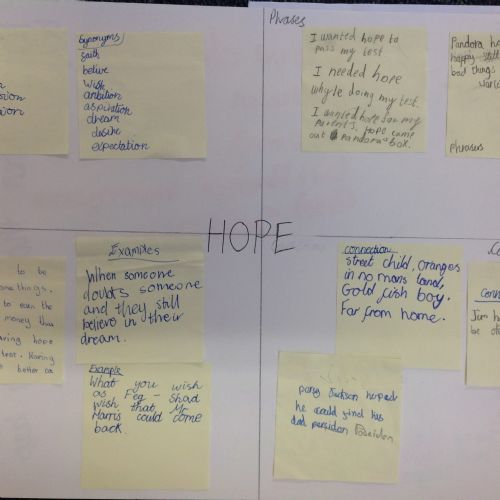 Synonyms
faith
belive
wish
ambition
aspiration
dream
desire
expectation
Phrases
I wanted hope to
pass my test
I needed hope
whyle doing my test.
I wanted hope for my
Parent's. Hope came
out Pandora's box.
Pandora
happy still
bad things
Phrases
HOPE
to be
things.
to earn the
money thus
having hope
test. Having
better as
Examples
When someone
doubts someone
and they still
believe in their
dream.
Example
What you wish
as Feg - Shad
Wish that Mr
Harris could come
back
connection
street child, Oranges
in no mans land,
Gold fish boy.
Far from home.
Jim
be
percy Jackson hoped
he could find his
dad Poseidon